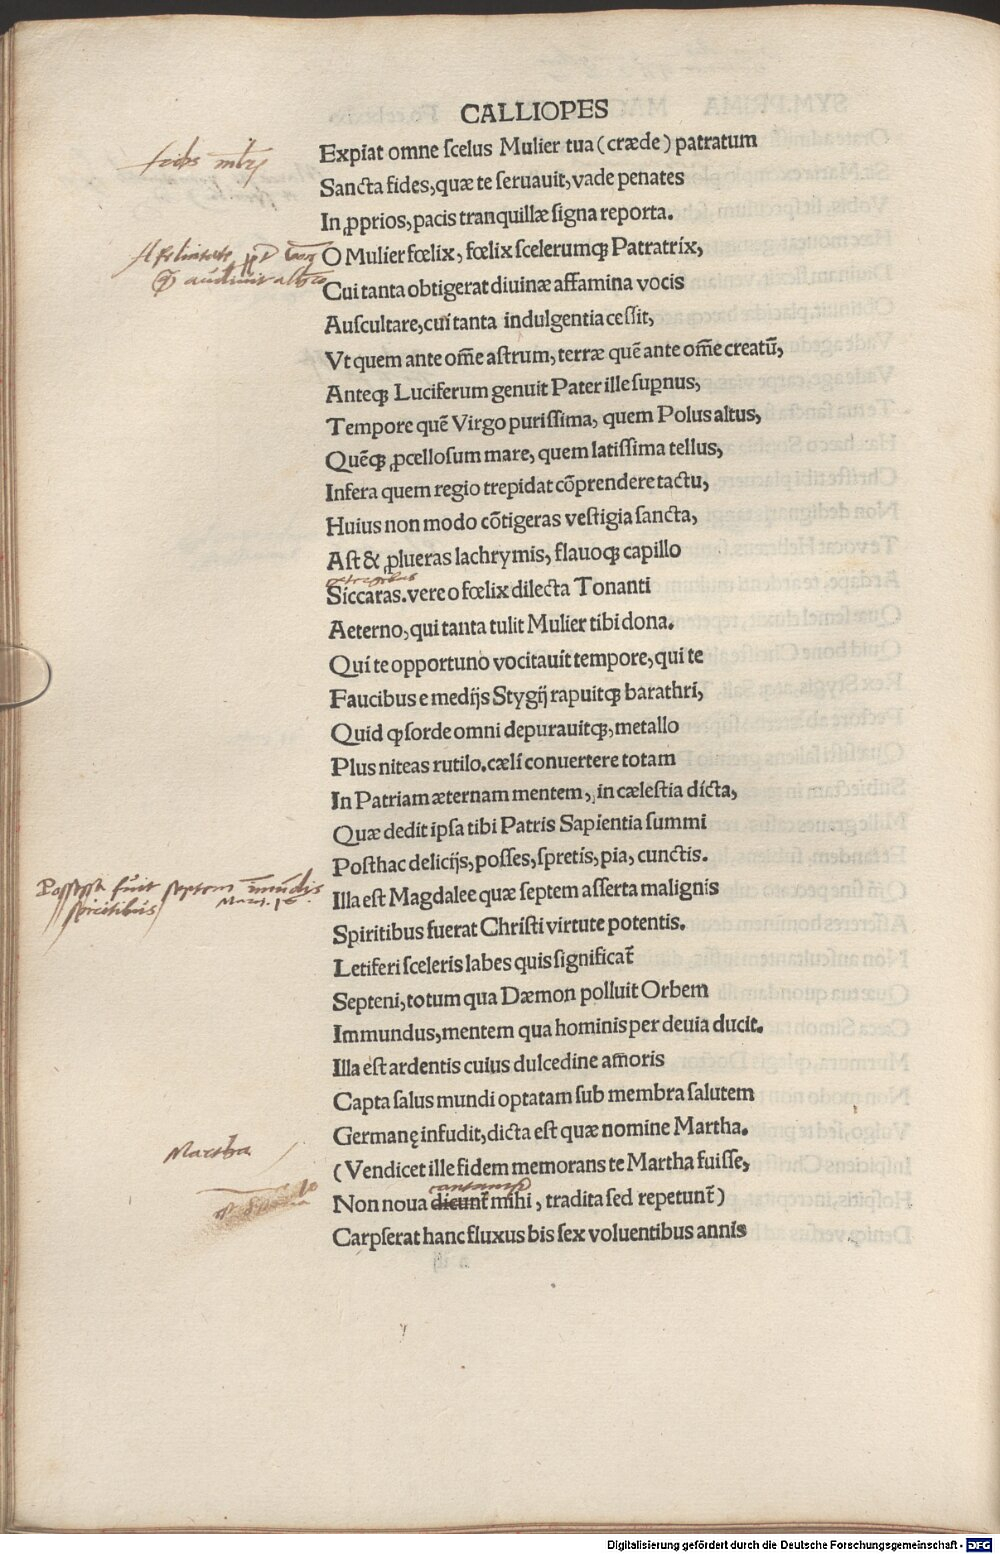 CALLIOPES
Expiat omne ſcelus Mulier tua (cræde) patratum
Sancta fides, quæ te ſeruauit, vade penates
In ꝓprios, pacis tranquillæ ſigna reporta.
O Mulier fœlix, fœlix ſcelerumqꝫ Patratrix,
Cui tanta obtigerat diuinæ affamina vocis
Auſcultare, cui tanta indulgentia ceſſit,
Vt quem ante om̄e aſtrum, terræ quē ante om̄e creatū,
Anteqꝫ Luciferum genuit Pater ille ſupnus,
Tempore quē Virgo puriſſima, quem Polus altus,
Quēqꝫ ꝓcelloſum mare, quem latiſſima tellus,
Infera quem regio trepidat cōprendere tactu,
Huius non modo cōtigeras veſtigia ſancta,
Aſt & ꝓlueras lachrymis, flauoqꝫ capillo
Siccaras. vere o fœlix dilecta Tonanti
Aeterno, qui tanta tulit Mulier tibi dona.
Qui te opportuno vocitauit tempore, qui te
Faucibus e medijs Stygij rapuitqꝫ barathri,
Quid ꝙ ſorde omni depurauitqꝫ, metallo
Plus niteas rutilo. cæli conuertere totam
In Patriam æternam mentem, in cæleſtia dicta,
Quæ dedit ipſa tibi Patris Sapientia ſummi
Poſthac delicijs, poſſes, ſpretis, pia, cunctis.
Possessa fuit septem immūdis
spiritibus
Marci. 16.
Illa eſt Magdalee quæ ſeptem aſſerta malignis
Spiritibus fuerat Chriſti virtute potentis.
Letiferi ſceleris labes quis ſignificat̄
Septeni, totum qua Dæmon polluit Orbem
Immundus, mentem qua hominis per deuia ducit.
Illa eſt ardentis cuius dulcedine am̄oris
Capta ſalus mundi optatam ſub membra ſalutem
Germanę infudit, dicta eſt quæ nomine Martha.
Martha
(Vendicet ille fidem memorans te Martha fuiſſe,
Non noua dicunt̄ mihi, tradita ſed repetunt̄)
Carpſerat hanc fluxus bis ſex voluentibus annis
Digitalisierung gefördert durch die Deutsche Forschungsgemeinschaft - DFG